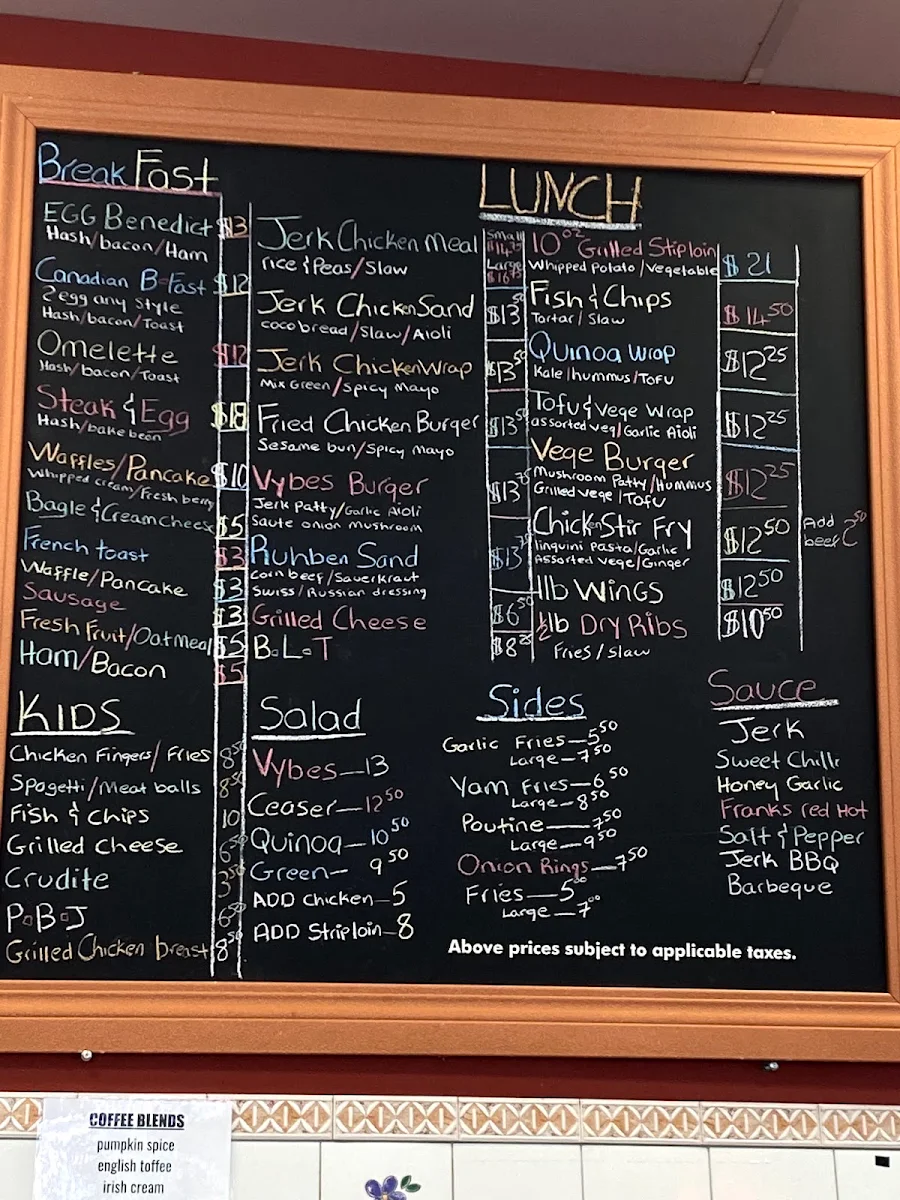 BreakFast
EGG Benedict $13
Hash/bacon/Ham
Canadian B-Fast $12
2 egg any Style
Hash/bacon/Toast
Omelette $12
Hash/bacon/Toast
Steak & Egg $18
Hash/bake bean
Waffles/Pancake $10
Whipped cream/Fresh berry
Bagle & Cream cheese $5
French toast $3
Waffle/Pancake $3
Sausage $3
Fresh Fruit/Oatmeal $5
Ham/Bacon $5
LUNCH
Jerk Chicken Meal Small $14.75
rice & Peas/Slaw Large $16.75
Jerk Chicken Sand $13 50
coco bread/Slaw/Aioli
Jerk Chicken Wrap $13 50
Mix Green/Spicy Mayo
Fried Chicken Burger $13 50
Sesame bun/Spicy Mayo
Vybes Burger $13 75
Jerk Patty/Garlic Aioli
Saute onion mushroom
Ruhben Sand $13 75
Corn beef/Sauerkraut
Swiss/Russian dressing
Grilled Cheese $6 50
B.L.T $8 25
10oz Grilled Stiploin $21
Whipped Potato/Vegetable
Fish & Chips $14 50
Tartar/Slaw
Quinoa Wrap $12 25
Kale/hummus/Tofu
Tofu & Vege Wrap $12 25
assorted veg/Garlic Aioli
Vege Burger $12 25
Mushroom Patty/Hummus
Grilled vege/Tofu
Chicken Stir Fry $12 50 Add beef 2 50
linquini Pasta/Garlic
Assorted vege/Ginger
1lb Wings $12 50
½lb Dry Ribs $10 50
Fries/Slaw
KIDS
Chicken Fingers/Fries 8 50
Spagetti/Meat balls 8 50
Fish & Chips 10
Grilled Cheese 6 50
Crudite 3 50
P.B.J 6 50
Grilled Chicken breast 8 50
Salad
Vybes—13
Ceaser—12 50
Quinoa—10 50
Green— 9 50
ADD Chicken—5
ADD Striploin—8
Sides
Garlic Fries—5 50
Large—7 50
Yam Fries—6 50
Large—8 50
Poutine—7 50
Large—9 50
Onion Rings—7 50
Fries—5 00
Large—7 00
Sauce
Jerk
Sweet Chilli
Honey Garlic
Franks red Hot
Salt & Pepper
Jerk BBQ
Barbeque
Above prices subject to applicable taxes.
COFFEE BLENDS
pumpkin spice
english toffee
irish cream